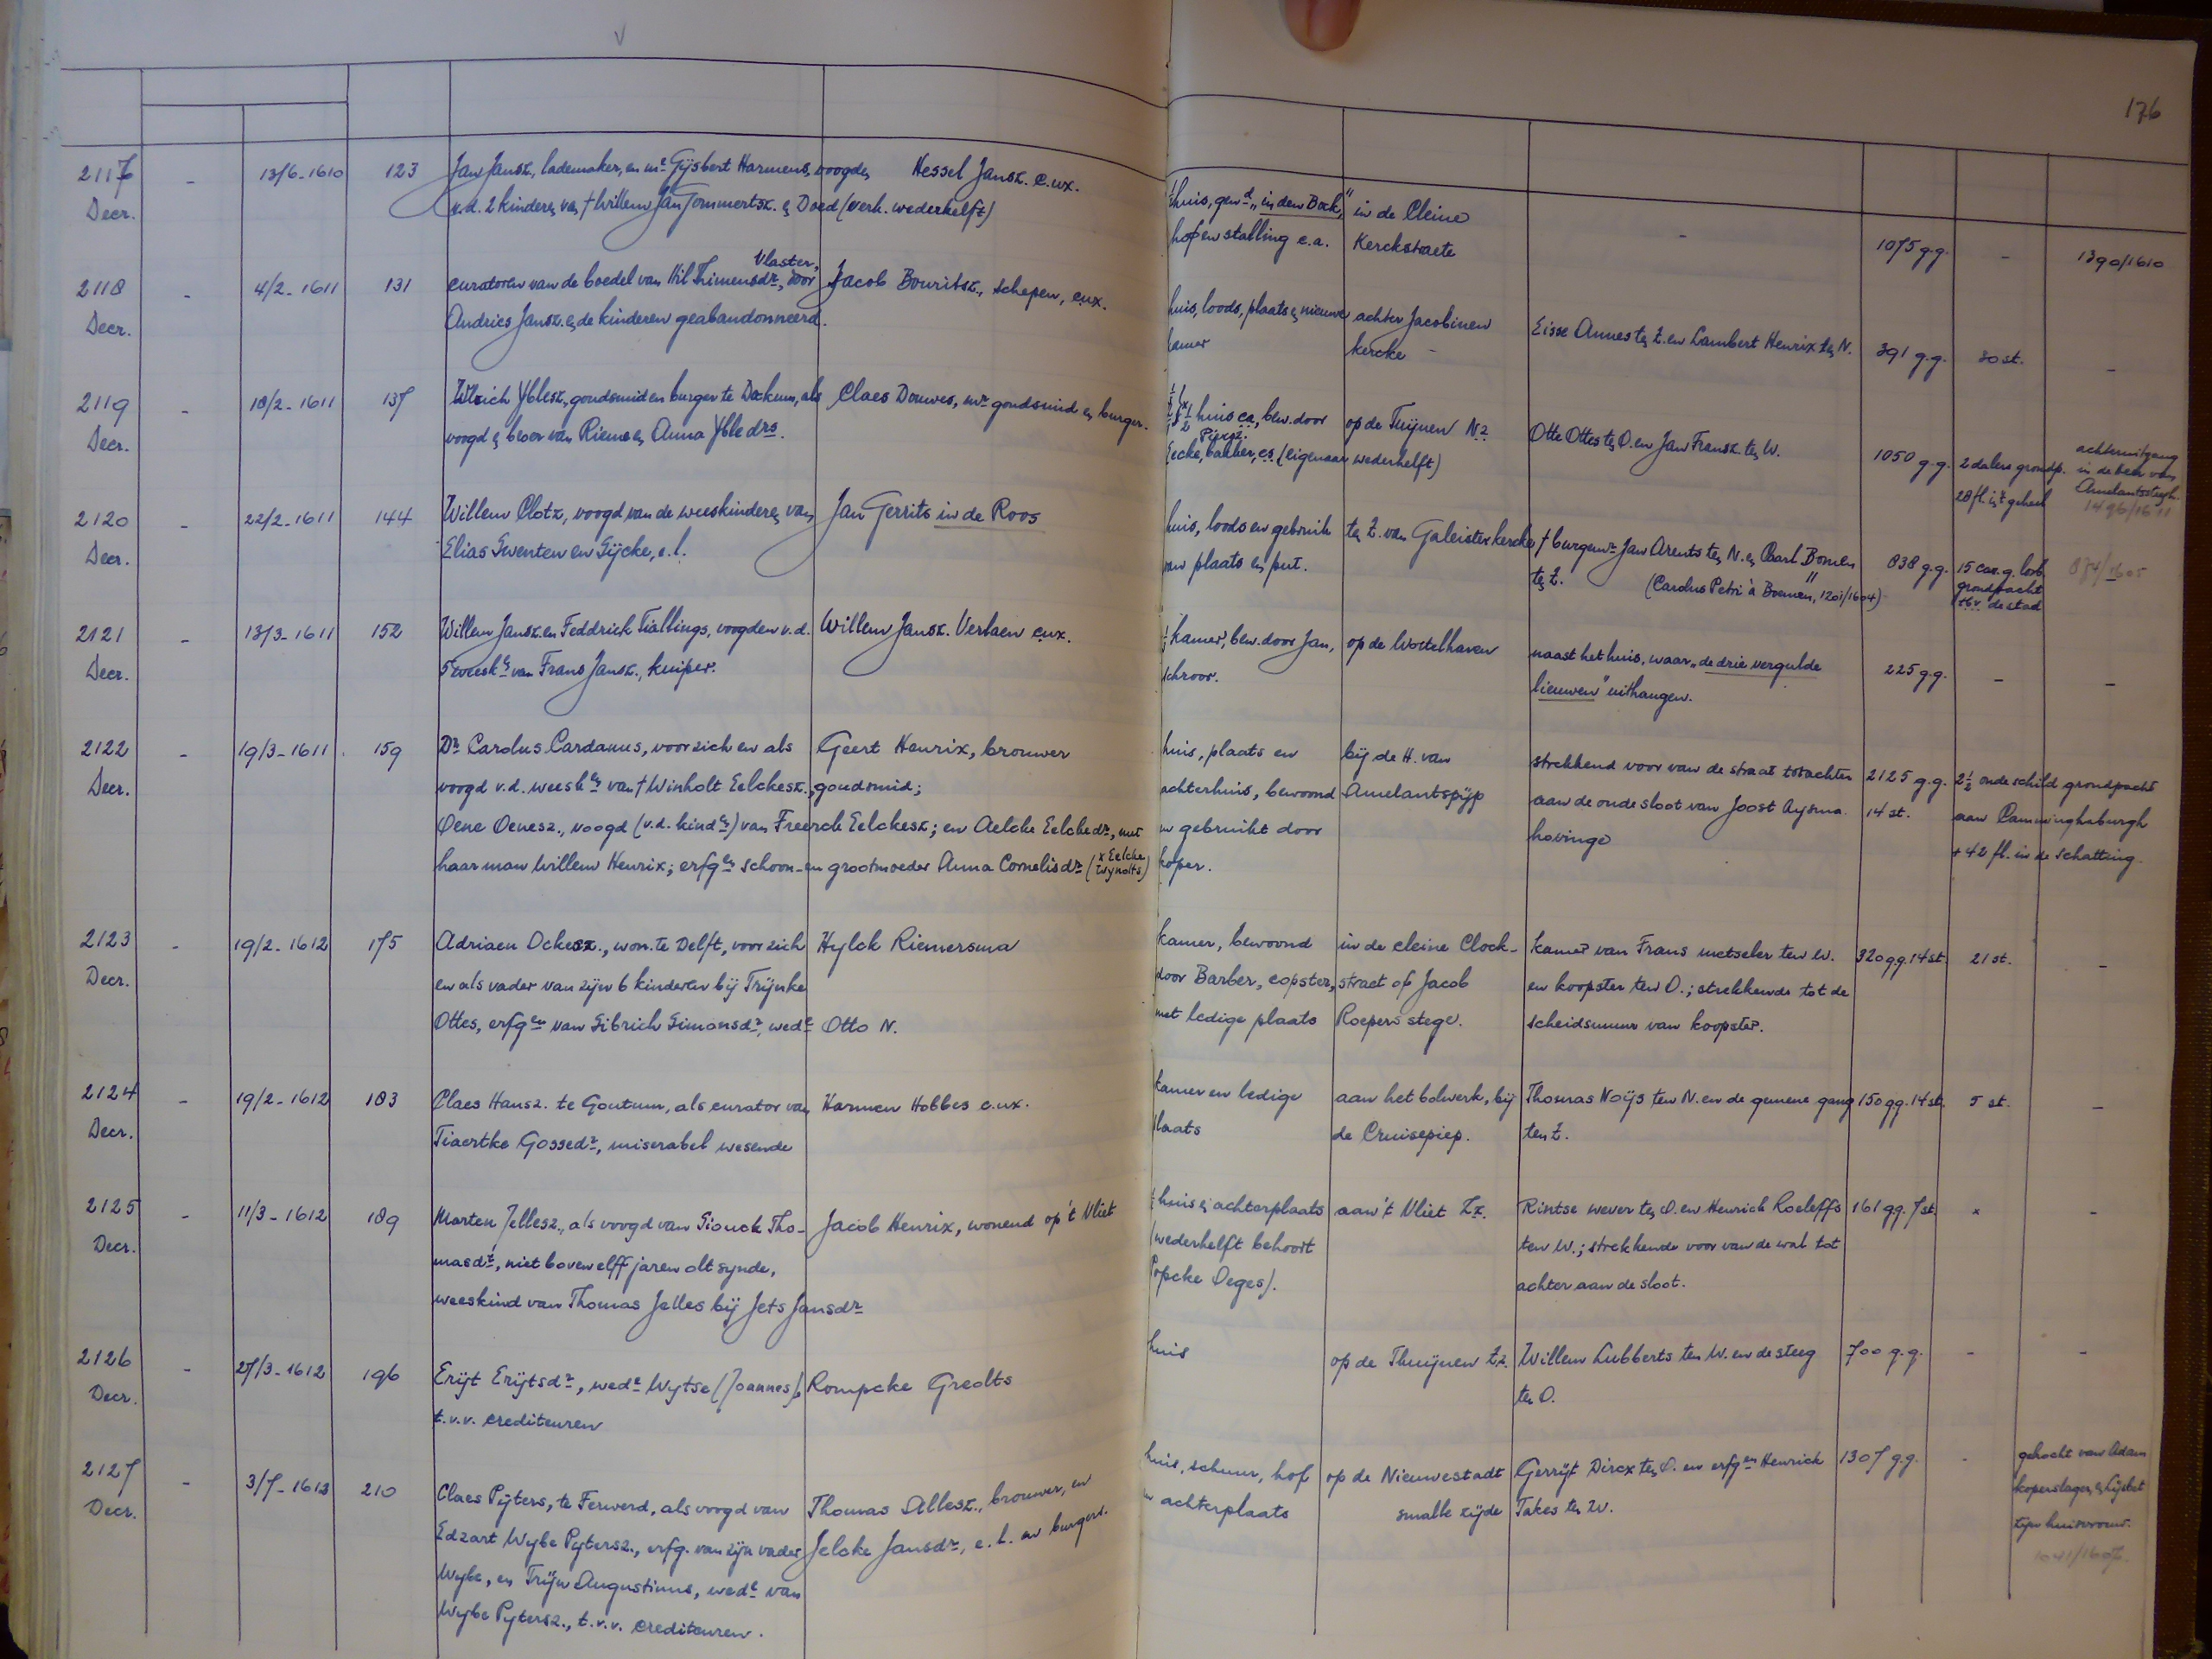 176
2117 - 13/6-1610 123 Jan Jansz., lademaker, en mr Gijsbert Harmens, voogden Hessel Jansz. e.ux.
Decr. v.d. 2 kinderen van † Willem Jan Jommertsz. en Doed (verk. wederhelft)
huis, gend „in den Bock," in de Cleine - 1075 g.g. - 1390/1610
hof en stalling c.a. Kerckstraete
2118 - 4/2-1611 131 curatoren van de boedel van Hil Thimensdr, Vlaster, door Jacob Bouritsz., schepen, e.ux.
Decr. Andries Jansz. en de kinderen geabandonneerd.
huis, loods, plaats en nieuwe achter Jacobinen Eisse Annes ten Z. en Lambert Henrix ten N. 391 g.g. 30 st. -
kamer kercke -
2119 - 18/2-1611 137 Wlrich Yblesz., goudsmid en burger te Dockum, als Claes Douwes, mr goudsmid en burger.
Decr. voogd en broer van Rieme en Anna Ybledrs.
huis ca, bew. door op de Tuijnen Nz. Otte Ottes ten O. en Jan Fransz. ten W. 1050 g.g. 2 dalers grondp. achteruitgang
Eecke, bakker, cs. (eigenaar wederhelft) 28 fl. in 't geheel in de
Amelantsstegh.
1496/1611
2120 - 22/2-1611 144 Willem Clotz, voogd van de weeskinderen van Jan Gerrits in de Roos
Decr. Elias Swenten en Sijcke, e.l.
huis, loods en gebruik ten Z. van Galeister kercke † burgemr Jan Arents ten N. en Carl Bomen 838 g.g. 15 car. g. losb.
van plaats en put. ten Z. (Carolus Petri à Boemen, 1201/1604) grondpacht
t.b.v. de stad
2121 - 13/3-1611 152 Willem Jansz. en Feddrick Tiallings, voogden v.d. Willem Jansz. Verlaen e.ux.
Decr. 5 weeskn van Frans Jansz., kuiper.
kamer, bew. door Jan, op de Wortelhaven naast het huis, waar „de drie vergulde 225 g.g. - -
schroor. lieuwen" uithangen.
2122 - 19/3-1611 159 Dr Carolus Cardanus, voor zich en als Geert Henrix, brouwer
Decr. voogd v.d. weeskn van † Winholt Eelckesz., goudsmid;
Oene Oenesz., voogd (v.d. kindn) van Freerck Eelckesz; en Aelcke Eelckedr, met
haar man Willem Henrix; erfgen schoon- en grootmoeder Anna Cornelisdr (x Eelcke Wynolts)
huis, plaats en bij de H. van strekkend voor van de straat tot achter 2125 g.g. 2½ oude schild grondpacht
achterhuis, bewoond Amelantspijp aan de oude sloot van Joost Aysma 14 st. aan Camminghaburgh
en gebruikt door hovinge + 42 fl. in de schatting.
koper.
2123 - 19/2-1612 175 Adriaen Ockesz., won. te Delft, voor zich Hylck Riemersma
Decr. en als vader van zijn 6 kinderen bij Trijnke
Ottes, erfgen van Sibrich Simonsdr, wede Otto N.
kamer, bewoond in de cleine Clock- kamer van Frans metseler ten W. 320 gg. 14 st. 21 st. -
door Barber, copster, straet of Jacob en koopster ten O.; strekkende tot de
met ledige plaats Roepers stege. scheidsmuur van koopster.
2124 - 19/2-1612 183 Claes Hansz. te Goutum, als curator van Harmen Hobbes e.ux.
Decr. Tiaertke Gossedr, miserabel wesende
kamer en ledige aan het bolwerk, bij Thomas Noijs ten N. en de gemene gang 150 gg. 14 st. 5 st. -
plaats de Cruisepiep. ten Z.
2125 - 11/3-1612 189 Marten Jellesz., als voogd van Siouck Tho- Jacob Henrix, wonend op 't Vliet
Decr. masdr, niet boven elff jaren olt synde,
weeskind van Thomas Jelles bij Jets Jansdr
½ huis en achterplaats aan 't Vliet Zz. Rintse wever ten O. en Henrick Roeleffs 161 gg. 7 st. x -
(wederhelft behoort ten W.; strekkende voor van de wal tot
Popcke Deges). achter aan de sloot.
2126 - 27/3-1612 196 Erijt Erijtsdr, wede Wytse (Joannes), Rompcke Greolts
Decr. t.v.v. crediteuren
huis op de Thuijnen Zz. Willem Lubberts ten W. en de steeg 700 g.g. - -
ten O.
2127 - 3/7-1612 210 Claes Pijters, te Ferwerd, als voogd van Thomas Allesz., brouwer, en
Decr. Edzart Wybe Pytersz., erfg. van zijn vader Jelcke Jansdr, e.l. en burgers.
Wybe, en Trijn Augustinus, wede van
Wybe Pytersz., t.v.v. crediteuren.
huis, schuur, hof op de Nieuwestadt Gerrijt Dircx ten O. en erfgen Henrick 1307 g.g. - gekocht van Adam
en achterplaats smalle zijde Takes ten W. koperslager en Lijsbet
zijn huisvrouw.
1041/1607.